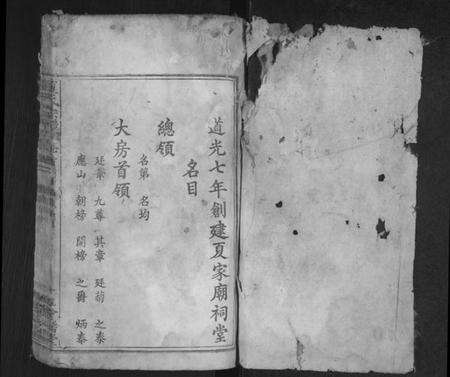 道光七年創建夏家廟祠堂
名目
總領
名第 名均
大房首領
廷棻 九尊 其章 廷菊 之泰
應山 朝榜 開榜 之爵 炳泰